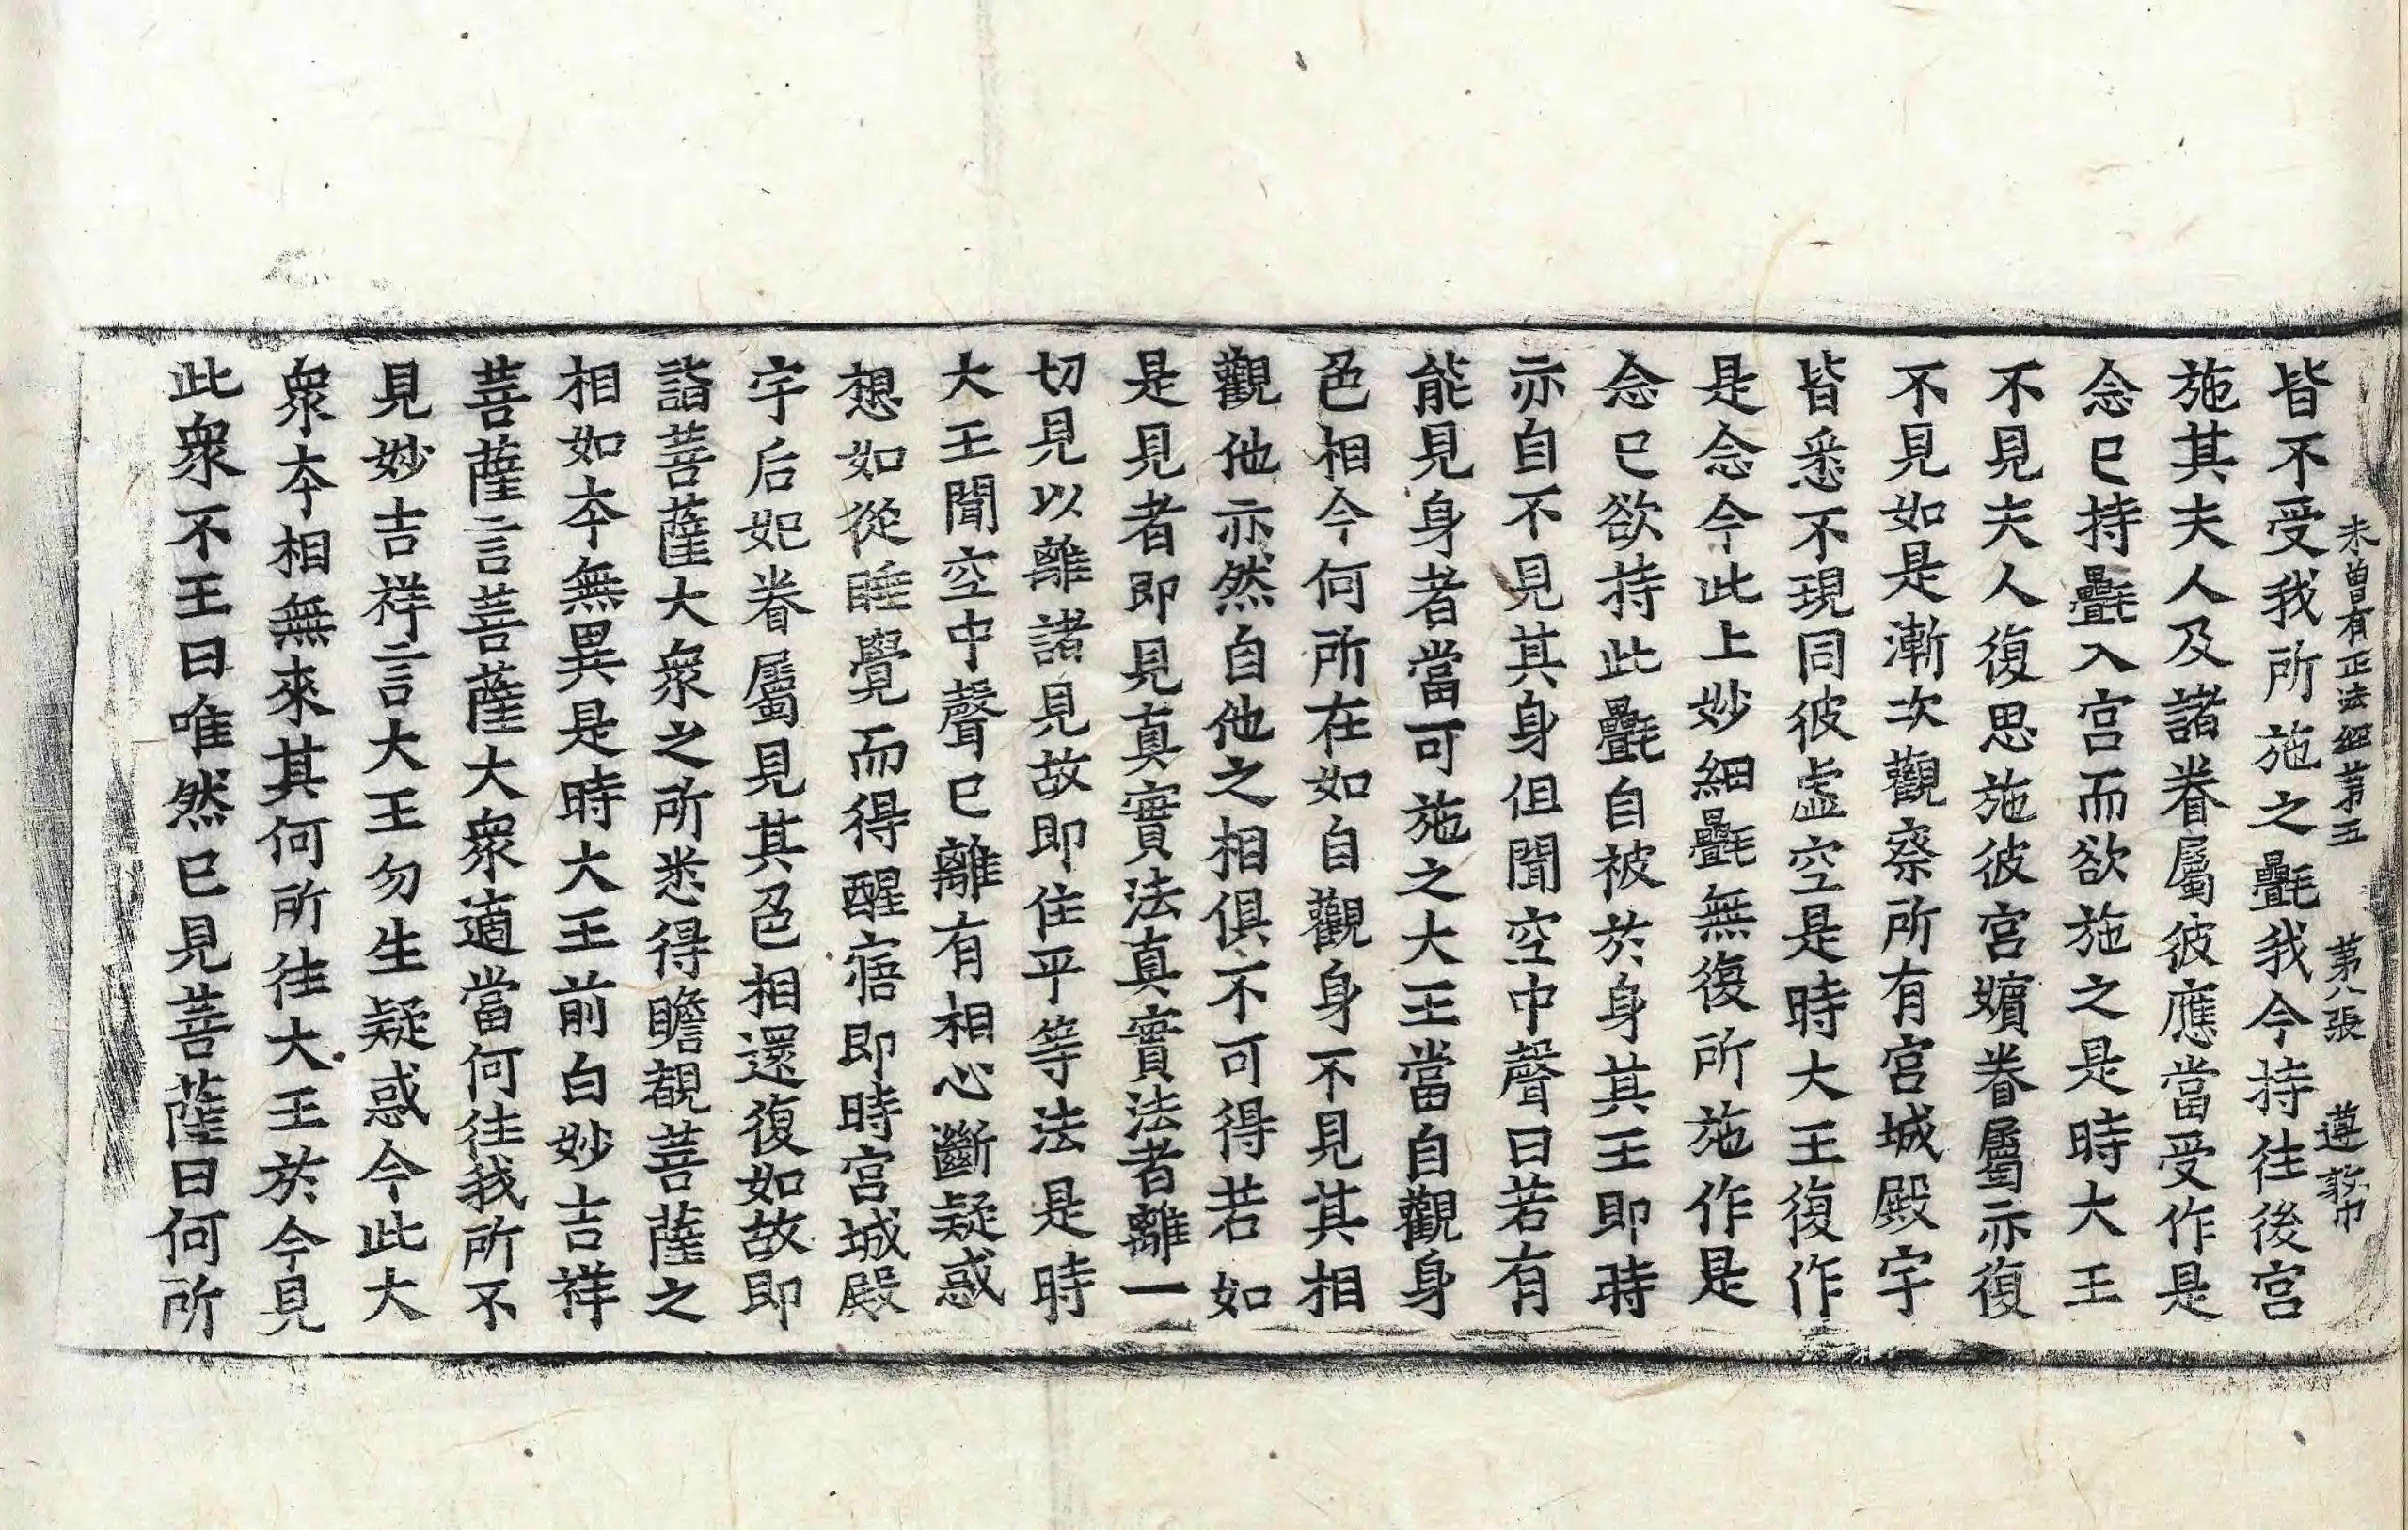 未曽有正法經第五　第八張　遵
皆不受我所施之㲲我今持往後宮
施其夫人及諸眷屬彼應當受作是
念已持㲲入宮而欲施之是時大王
不見夫人復思施彼宮嬪眷屬亦復
不見如是漸次觀察所有宮城殿宇
皆悉不現同彼虛空是時大王復作
是念今此上妙細㲲無復所施作是
念已欲持此㲲自被於身其王即時
亦自不見其身但聞空中聲曰若有
能見身者當可施之大王當自觀身
色相今何所在如自觀身不見其相
觀他亦然自他之相俱不可得若如
是見者即見真實法真實法者離一
切見以離諸見故即住平等法是時
大王聞空中聲已離有相心斷疑惑
想如從睡覺而得醒寤即時宮城殿
宇后妃眷屬見其色相還復如故即
詣菩薩大衆之所悉得瞻覩菩薩之
相如夲無異是時大王前白妙吉祥
菩薩言菩薩大衆適當何往我所不
見妙吉祥言大王勿生疑惑今此大
衆夲相無來其何所往大王於今見
此衆不王曰唯然已見菩薩曰何所